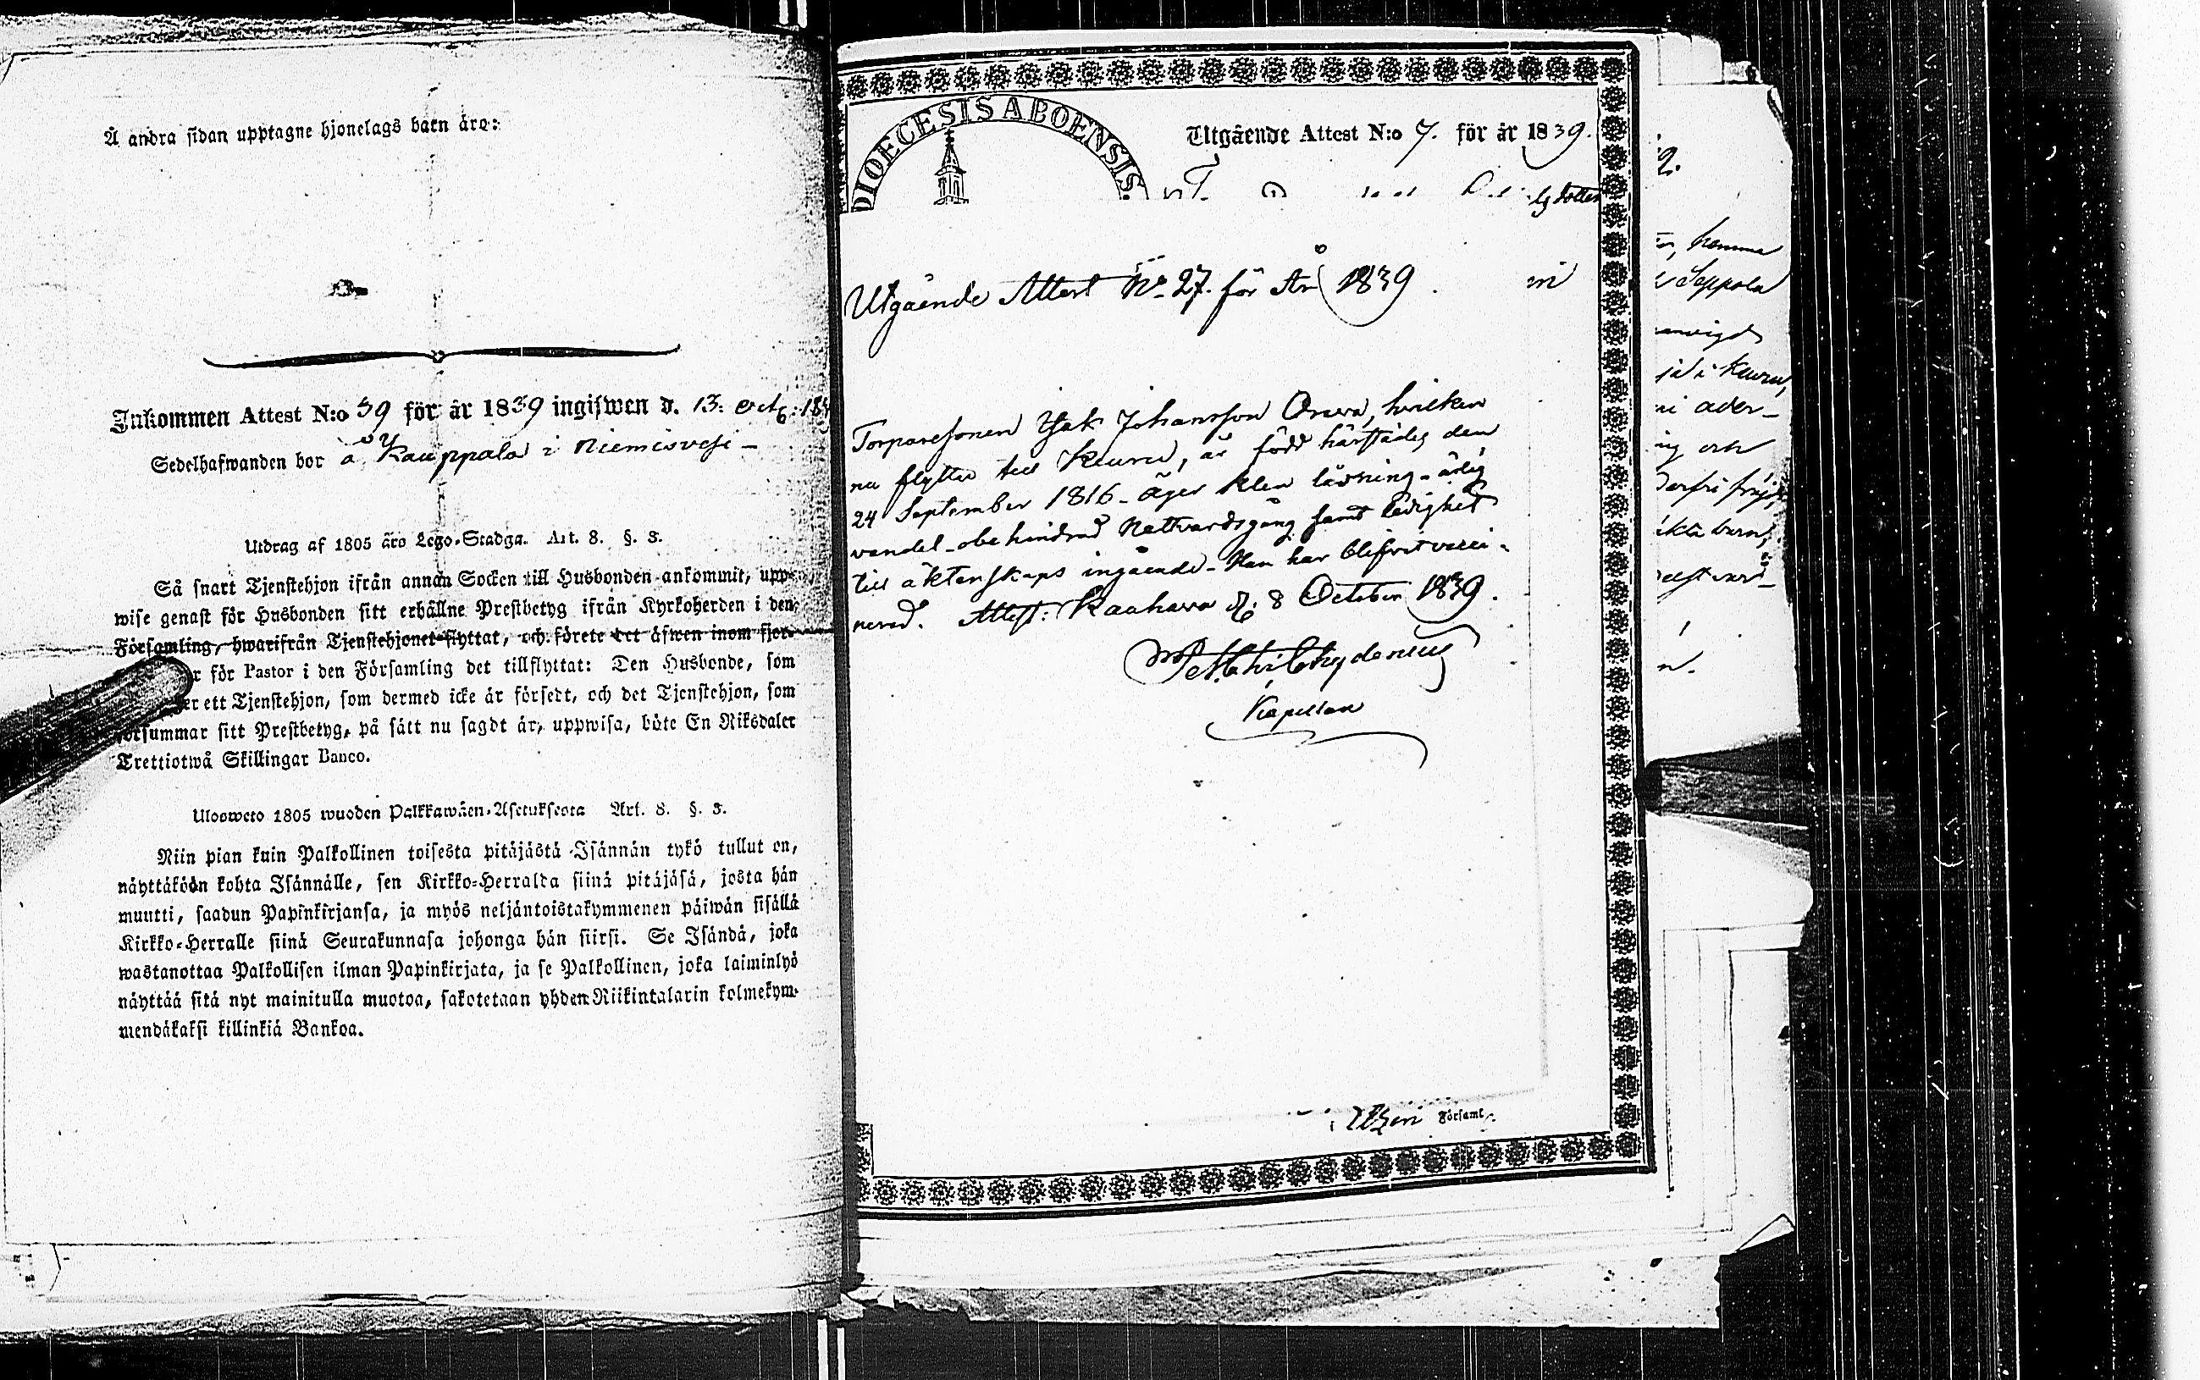 Å andra sidan upptagne hjonelags barn äro:
Inkommen Attest N:o 39 för år 1839 ingifwen d. 13: Octb: 18
Sedelhafwanden bor å Kauppala i Niemisvesi -
Utdrag af 1805 års Lego-Stadga. Art. 8. §. 3.
Så snart Tjenstehjon ifrån annan Socken till Husbonden ankommit, upp-
wise genast för Husbonden sitt erhållne Prestbetyg ifrån Kyrkoherden i den
Församling, hwarifrån Tjenstehjonet flyttat, och förete det äfwen inom fjor-
för Pastor i den Församling det tillflyttat: Den Husbonde, som
ett Tjenstehjon, som dermed icke är försedt, och det Tjenstehjon, som
försummar sitt Prestbetyg, på sätt nu sagdt är, uppwisa, böte En Riksdaler
Trettiotwå Skillingar Banco.
Ulosweto 1805 wuoden Palkkawäen-Asetuksesta Art. 8. §. 3.
Niin pian kuin Palkollinen toisesta pitäjästä Isännän tykö tullut on,
näyttäköön kohta Isännälle, sen Kirkko-Herralda siinä pitäjäsä, josta hän
muutti, saadun Papinkirjansa, ja myös neljäntoistakymmenen päiwän sisällä
Kirkko-Herralle siinä Seurakunnasa johonga hän siirsi. Se Isändä, joka
wastanottaa Palkollisen ilman Papinkirjata, ja se Palkollinen, joka laiminlyö
näyttää sitä nyt mainitulla muotoa, sakotetaan yhden Riikintalarin kolmekym-
mendäkaksi killinkiä Bankoa.
DIOECESIS ABOENSIS.
Utgående Attest N:o 7. för år 1839.
Utgående Attest No 27. för År 1839.
Torparesonen Isak Johansson Orava, hvilken
nu flyttar till Keuru, är född härstädes den
24 September 1816 - äger klen läsning - ärlig
vandel - obehindrad Nattvardsgång samt ledighet
till äktenskaps ingående - Han har blifvit vacci-
nerad. Attest: Kaahava d. 8 October 1839.
Chydenius
Kapellan
Församl.
hemma
Seppola
i Keuru,
och